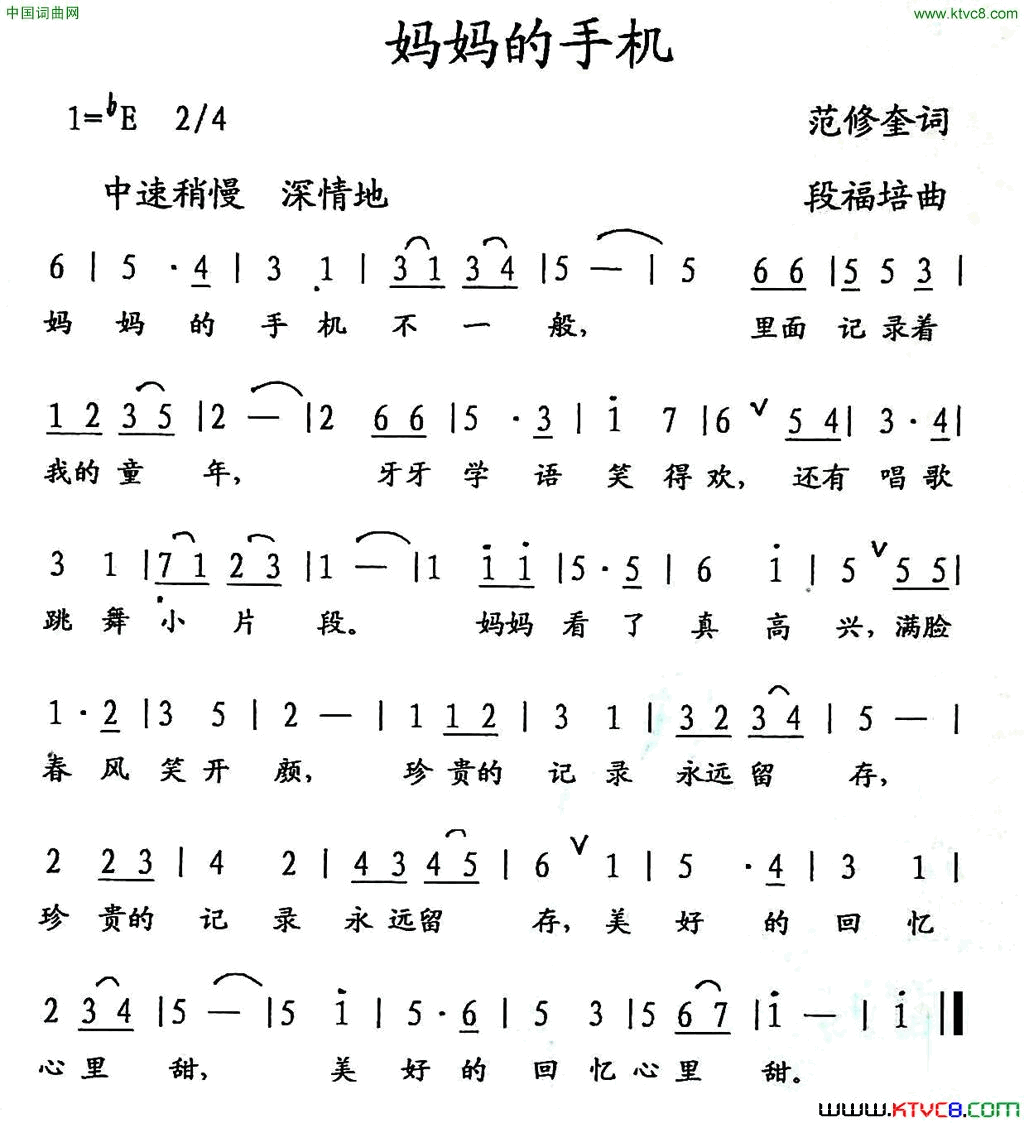 中国词曲网 www.ktvc8.com
妈妈的手机
1=♭E 2/4 范修奎词
中速稍慢 深情地 段福培曲
6 | 5 · 4 | 3 1 | 3 1 3 4 | 5 — | 5 6 6 | 5 5 3 |
妈 妈 的 手 机 不 一 般, 里面 记 录着
1 2 3 5 | 2 — | 2 6 6 | 5 · 3 | i 7 | 6 ∨ 5 4 | 3 · 4 |
我的 童 年, 牙牙 学 语 笑 得 欢, 还有 唱 歌
3 1 | 7 1 2 3 | 1 — | 1 i i | 5 · 5 | 6 i | 5 ∨ 5 5 |
跳 舞 小 片 段。 妈妈 看 了 真 高 兴, 满脸
1 · 2 | 3 5 | 2 — | 1 1 2 | 3 1 | 3 2 3 4 | 5 — |
春 风 笑 开 颜, 珍 贵的 记 录 永远 留 存,
2 2 3 | 4 2 | 4 3 4 5 | 6 ∨ 1 | 5 · 4 | 3 1 |
珍 贵的 记 录 永 远留 存, 美 好 的 回 忆
2 3 4 | 5 — | 5 i | 5 · 6 | 5 3 | 5 6 7 | i — | i ‖
心 里 甜, 美 好 的 回 忆 心 里 甜。
www.KTVC8.com